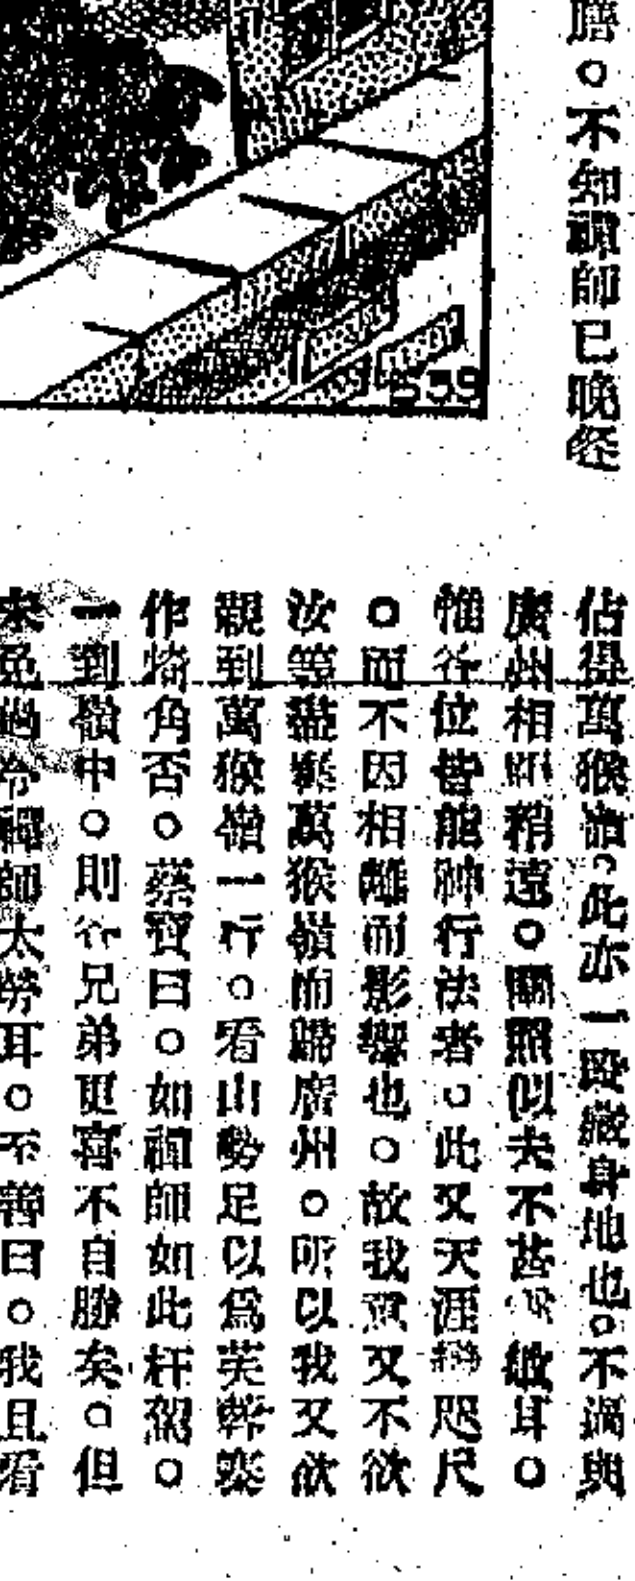 膳。不知禪師已晚經
佔得萬猴嶺。此亦一段藏身地也。不過與
廣州相距稍遠。關照似夫不甚敏耳。
惟各位皆能神行法者。此又天涯咫尺
。而不因相離而影響也。故我又不欲
汝等盡棄萬猴嶺而歸廣州。所以我又欲
親到萬猴嶺一行。看山勢足以為英寨
作犄角否。蔡寶曰。如禪師如此枉駕。
一到嶺中。則各兄弟更喜不自勝矣。但
未免過令禪師太勞耳。不善曰。我且看
539